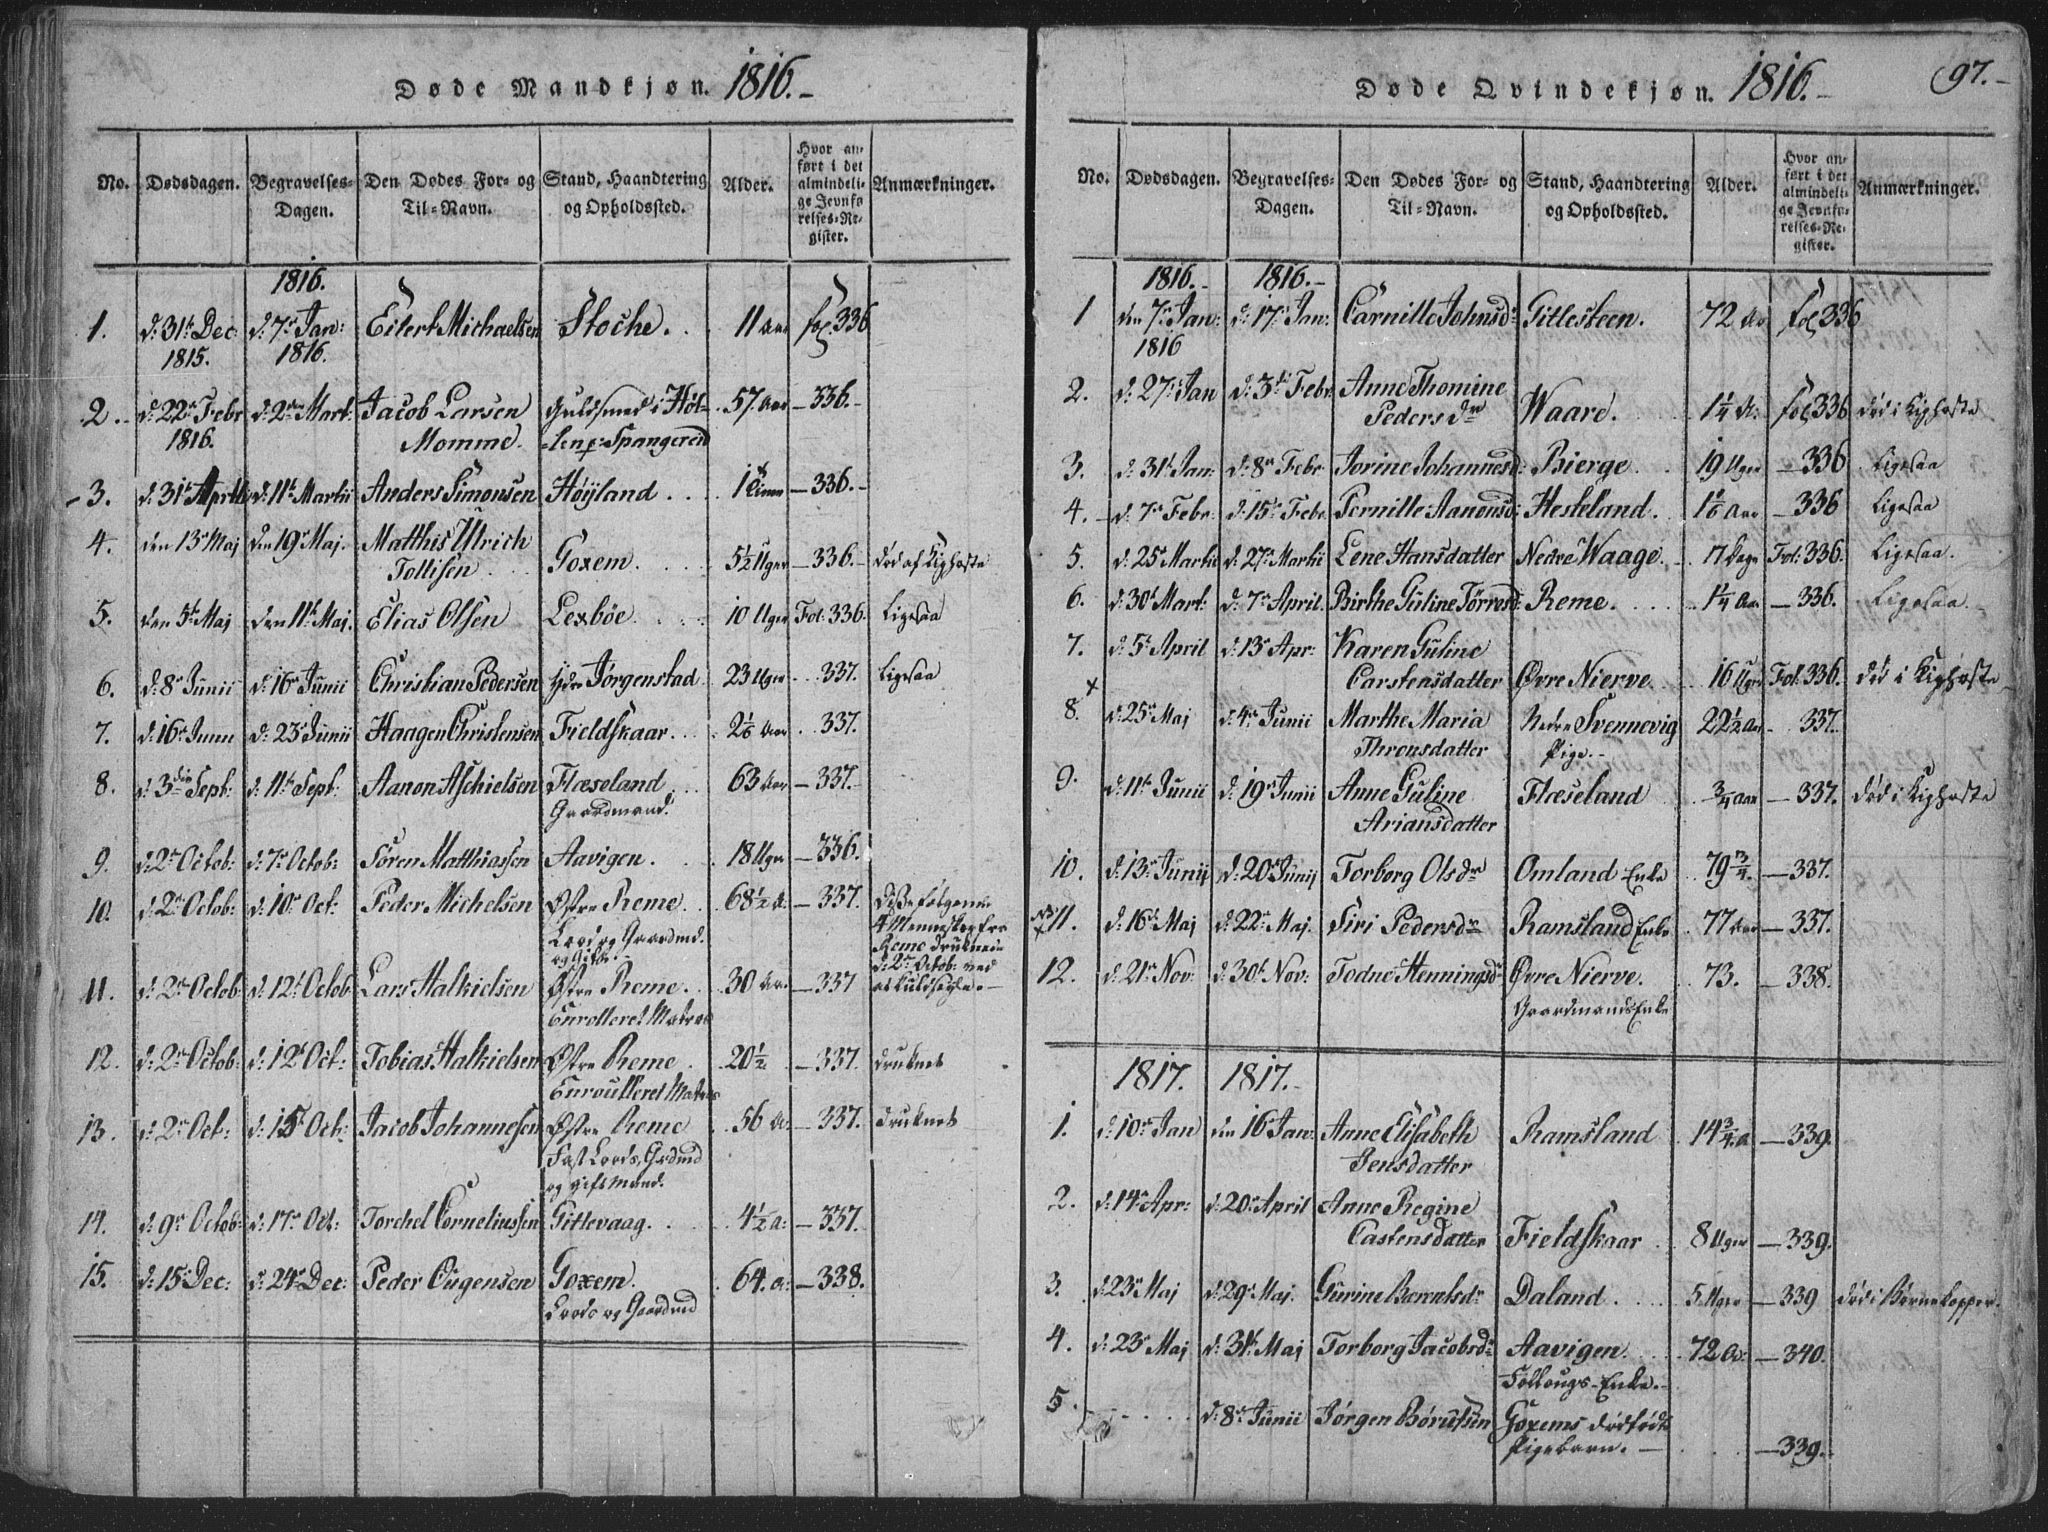 Døde Mandkjøn. 1816.-
No. Dødsdagen. Begravelses-Dagen. Den Dødes For- og Til-Navn. Stand, Haandtering og Opholdssted. Alder. Hvor anført i det almindelige Jevnførelses-Register. Anmærkninger.
1816.
1. d: 31t Dec: 1815. d: 7r Jan: 1816. Eilert Michaelsen Stoche. 11 Aar fol 336
2. d: 22r Febr 1816. d: 2den Mart: Jacob Larsen Momme. Guldsmed i Spangereid 57 Aar - 336.-
3. d: 31t d: 11t Martii Anders Simonsen Høyland 1 - 336.-
4. den 13r Maj den 19r Maj. Matthis Ulrich Tollisen Goxem. 5½ Uger - 336.- død af Kighoste
5. den 5t Maj den 11t Maj. Elias Olsen Lexbøe. 10 Uger Fol: 336. Ligesaa
6. d: 8r Junii d: 16r Junii Christian Pedersen Jørgenstad 23 Uger 337. Ligesaa
7. d: 16r Junii d: 23r Junii Haagen Christensen Fieldskaar 2 1/6 Aar 337.
8. d: 3die Sept: d: 11t Sept: Aanon Aschielsen Flæseland Gaardmand. 63 Aar - 337.-
9. d: 2r Octob: d: 7r Octob: Søren Matthiassen Aavigen. 18 Uger - 336.
10. d: 2r Octob: d: 10r Oct: Peder Michelsen Østre Reme. Lods og Gaardmd. og Gift. 68½ A: - 337. Disse følgende 4 Mennesker fra Reme druknede d: 2r Octob: ved
11. d: 2r Octob d: 12t Octob Lars Halkielsen Østre Reme. Enrolleret Matros 30 Aar - 337
12. d: 2r Octob: d: 12t Oct: Tobias Halkielsen Østre Reme Enroulleret Matros 20½ - 337. druknet
13. d: 2r Oct: d: 15r Oct: Jacob Johannesen Østre Reme Fast Lods, Grdmd og gift Mand. 56 A: - 337. druknet
14. d: 9r Octob: d: 17r Oct: Torchel Corneliussen Gitlevaag. 4½ a: - 337.
15. d: 15r Dec: d: 24r Dec: Peder Ougensen Goxem. Lods og Gaardmd 64. a: - 338.
Døde Qvindekjøn. 1816.- 97.-
No. Dødsdagen. Begravelses-Dagen. Den Dødes For- og Til-Navn. Stand, Haandtering og Opholdssted. Alder. Hvor anført i det almindelige Jevnførelses-Register. Anmærkninger.
1816.- 1816.-
1 den 7r Jan: 1816 d: 17r Jan: Carnille Johnsdr Gitlesteen. 72 Aar fol 336
2. d: 27r Jan d: 3t Febr Anne Thomine Pedersdr Waare. 1¼ A: fol 336 død i Kighoste
3. d: 31t Jan: d: 8r Febr Jorine Johannesd: Bierge. 19 Uger - 336 Ligesaa
4. d: 7r Febr: d: 15r Febr Pernille Aanonsd: Hesteland. 1 1/6 Aar - 336 Ligesaa
5. d: 25r Martii d: 27r Martii Lene Hansdatter Nedre Waage. 17 Dage Fol: 336. Ligesaa.
6. d: 30t Mart: d: 7r April Birthe Guline Tørresd: Reme. 1¼ Aar - 336. Ligesaa.
7. d: 5t April d: 13r Apr: Karen Guline Carstensdatter Øvre Nierve 16 Uger Fol: 336. død i Kighoste
8. x d: 25r Maj d: 4r Junii Marthe Maria Thronsdatter Nedre Svennevig Pige.- 22½ Aar - 337.
9. d: 11t Junii d: 19r Junii Anne Guline Ariansdatter Flæseland ¾ Aar - 337. død i Kighoste
10. d: 13r Junii d: 20r Junii Torborg Olsdr Omland Enke 79¾. - 337.
11. d: 16r Maj d: 22r Maj. Siri Pedersdr Ramsland Enke 77 Aar - 337.
12. d: 21r Nov: d: 30t Nov: Todne Henningsdr Øvre Nierve. Gaardmands Enke 73. - 338.
1817. 1817.-
1. d: 10r Jan den 16r Jan: Anne Elisabeth Jensdatter Ramsland 14¾ a - 339.
2. d: 14r Apr: d: 20r April Anne Regine Castensdatter Fieldskaar 8 Uger - 339.
3. d 23r Maj d: 29r Maj. Gurine Berentsdr Daland. 5 Uger - 339 død i Børnekopper.
4. d: 23r Maj d: 31t Maj Torborg Jacobsdr Aavigen. Føllougs-Enke.- 72 A: - 340.
5. d: 8r Junii Jørgen Børufsen Goxems dødfødte Pigebarn.- - 339.-